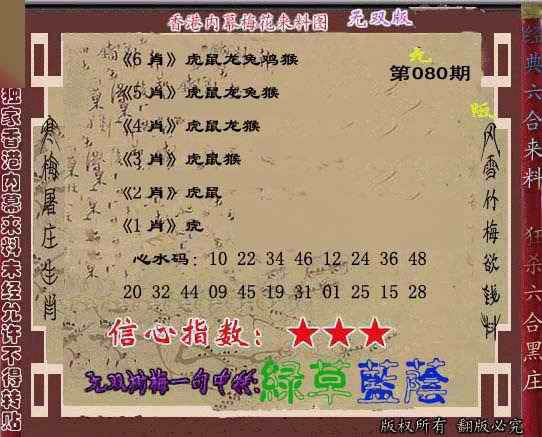 香港内幕梅花来料图 无双版
无
版
第080期
《6 肖》虎鼠龙兔鸡猴
《5 肖》虎鼠龙兔猴
《4 肖》虎鼠龙猴
《3 肖》虎鼠猴
《2 肖》虎鼠
《1 肖》虎
心水码：10 22 34 46 12 24 36 48
20 32 44 09 45 19 31 01 25 15 28
信心指数：★★★
绿草蓝荫
独家香港内幕来料未经允许不得转贴
寒梅屠庄生肖
风雪竹梅欲钱料
经典六合来料 狂杀六合黑庄
版权所有 翻版必究